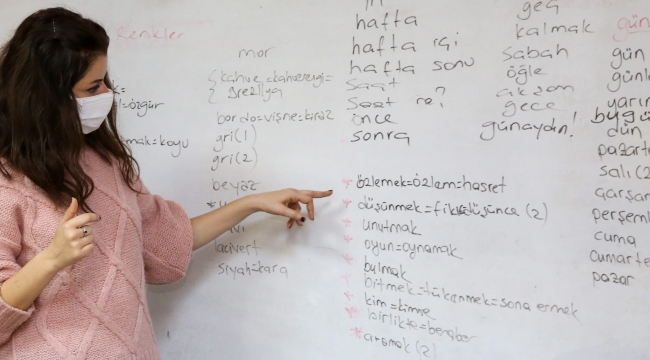 Renkler
=özgür
mak=koyu
mor
{kahve=kahverengi=
{Brezilya
bordo=vişne=kiraz
gri(1)
gri(2)
beyaz
vi
lacivert
siyah=kara
hafta
hafta içi
hafta sonu
saat
saat ne?
önce
sonra
geç
kalmak
sabah
öğle
akşam
gece
günaydın!
gün
gün
günl
yarın
bugü
dün
pazarte
salı(2
çarşar
perşeml
cuma
cumarte
pazar
* özlemek=özlem=hasret
* düşünmek=fikir=düşünce (2)
* unutmak
* oyun=oynamak
* bulmak
* bitmek=tükenmek=sona ermek
* kim=kimse
* birlikte=beraber
* aramak (2)